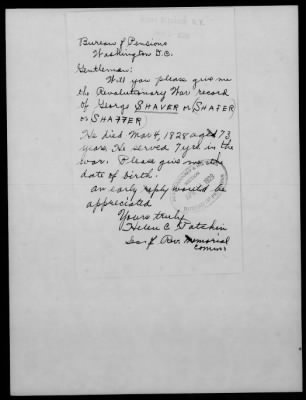 Bureau of Pensions
Washington D.C.
Gentlemen:
Will you please give me
the Revolutionary War record
of George SHAVER or (SHAFER
or SHAFFER)
He died Mar 4, 1828 aged 73
years. He served 7 yrs in the
war. Please give me the
date of birth.
An early reply would be
appreciated
Yours truly
Helen C.
Rev. Memorial
Comm